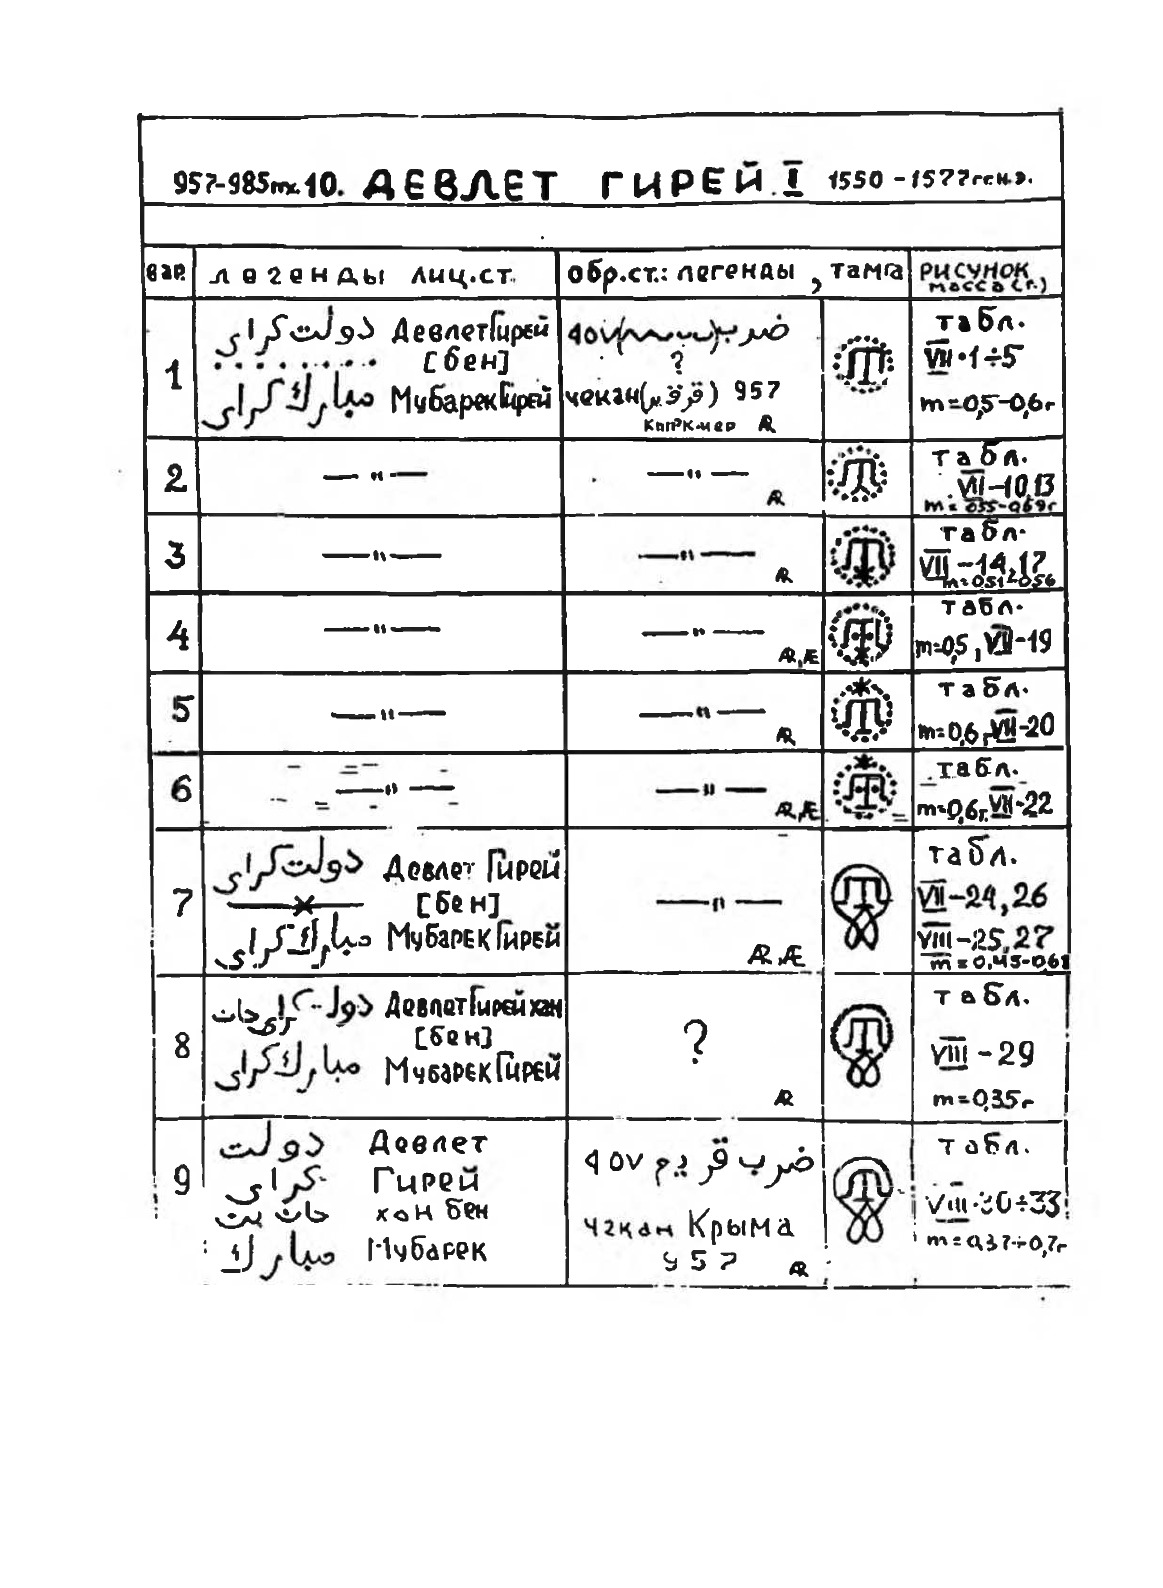 957-985гг.х. 10. ДЕВЛЕТ ГИРЕЙ I 1550 - 1577гг.н.э.
вар. легенды лиц.ст. обр.ст.: легенды, тамга РИСУНОК масса (г.)
1
دولت كراى ДевлетГирей
[бен]
مبارك كراى МубарекГирей
ضرب ٩٥٧
?
чекан 957
AR
табл.
VII·1÷5
m=0,5-0,6г
2 — " — — " — AR
табл.
VII-10,13
m=0,55-0,69г
3 — " — — " — AR
табл.
VII-14,17
m=0,51-0,56
4 — " — — " — AR, Æ
табл.
m=0,5, VII-19
5 — " — — " — AR
табл.
m=0,6г VII-20
6 — " — — " — AR, Æ
табл.
m=0,6г. VII-22
7
دولت كراى Девлет Гирей
[бен]
مبارك كراى МубарекГирей
— " —
AR, Æ
табл.
VII-24,26
VIII-25,27
m=0,45-0,68
8
ДевлетГирей хан
[бен]
مبارك كراى МубарекГирей
?
AR
табл.
VIII-29
m=0,35г
9
دولت Девлет
كراى Гирей
خان بن хан бен
مبارك Мубарек
ضرب قريم ٩٥٧
чекан Крыма
957 AR
табл.
VIII·30÷33
m=0,37÷0,7г